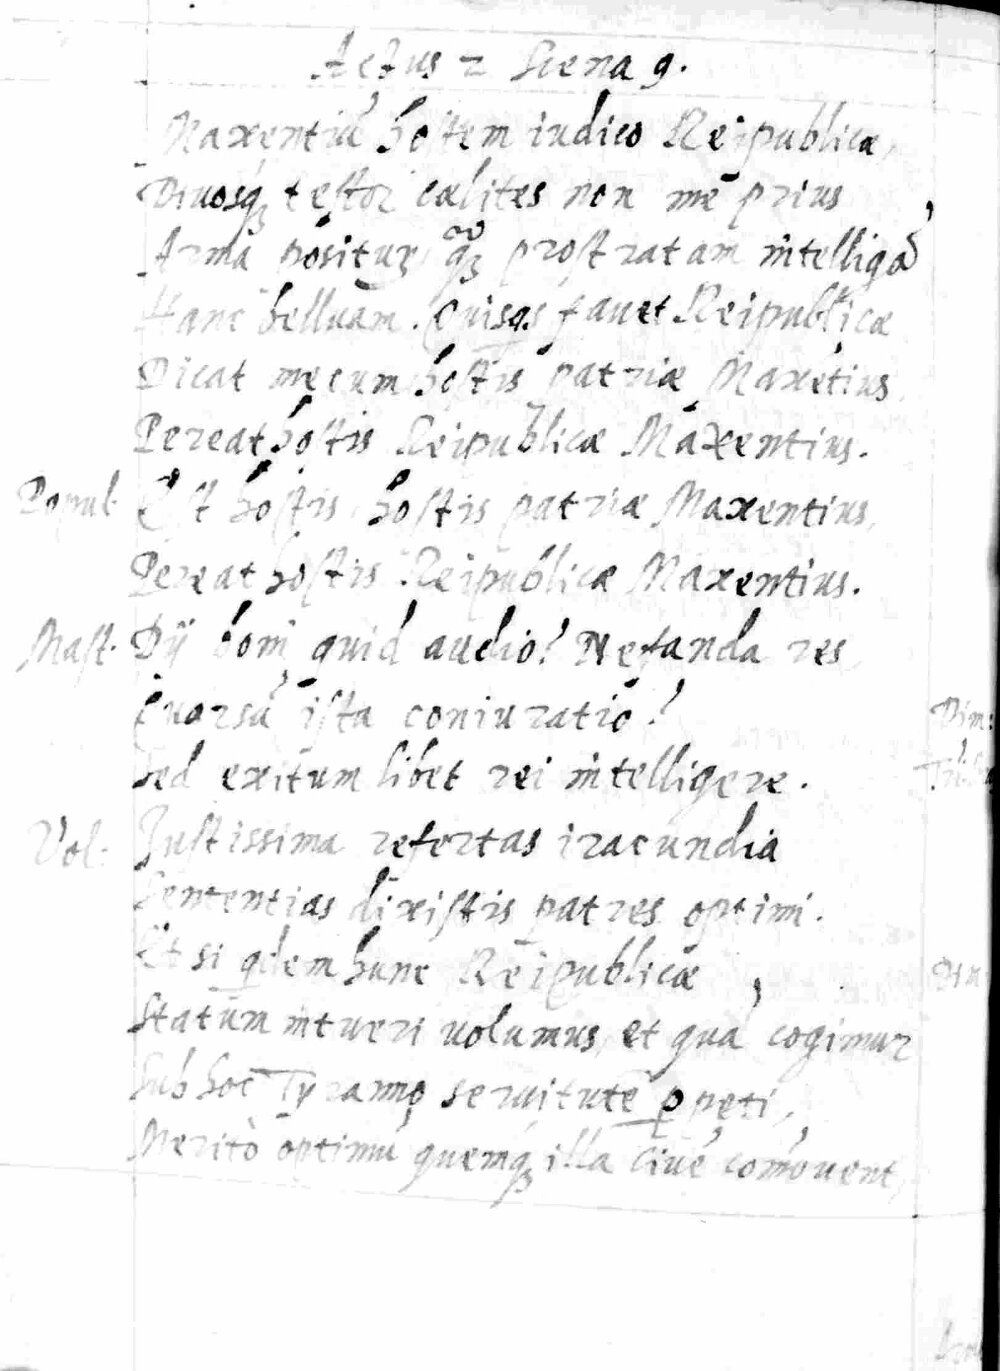 Actus 2 Scena 9.
Maxentiũ hostem iudico Reipublicæ,
Diuosq; testor cælites non me prius
Arma positurũ, q̃; prostratam intelligã
Hanc belluam. Quisq̃s fauet Reipublicæ
Dicat mecum hostis patriæ Maxẽtius,
Pereat hostis Reipublicæ Maxentius.
Popul. Est hostis, hostis patriæ Maxentius,
Pereat hostis Reipublicæ Maxentius.
Mast. Dij boni quid audio! Nefanda res
Quorsã ista coniuratio!
Sed exitum libet rei intelligere.
Vol. Justissima refertas iracundia
Sententias dixistis patres optimi.
Et si q̃dem hunc Reipublicæ
Statum intueri volumus, et quã cogimur
Sub hoc Tyranno seruitutẽ ꝑpeti,
Meritò optimũ quemq; illa ciuẽ com̃ouent,